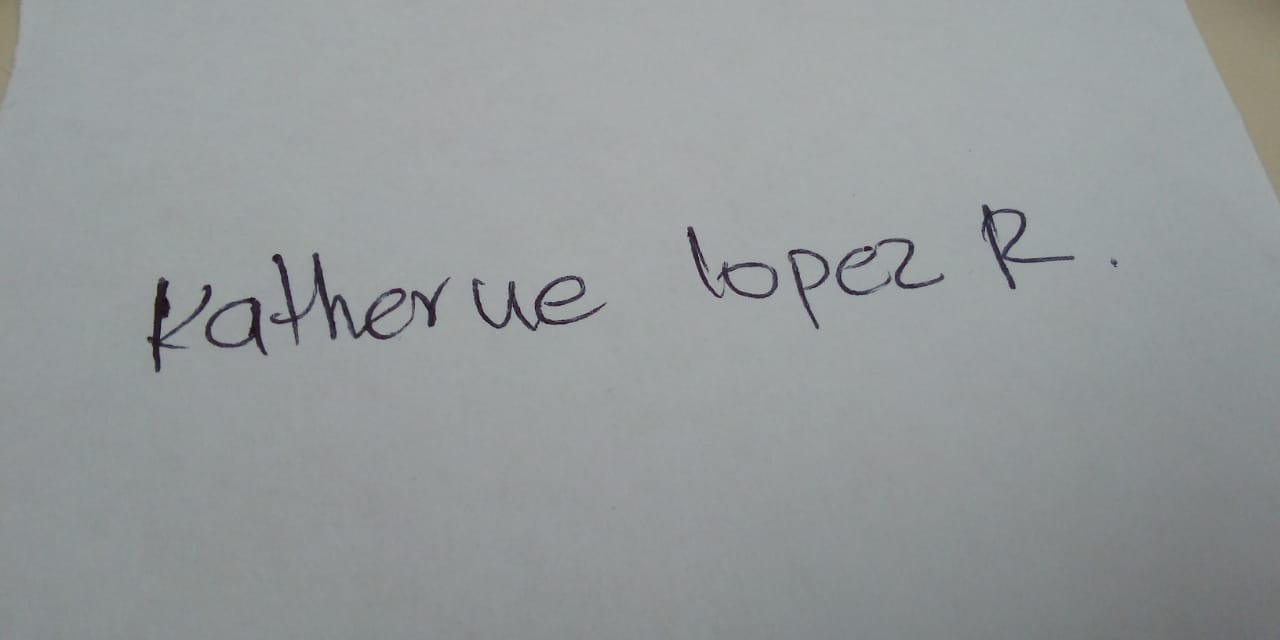 Katherine lopez R.